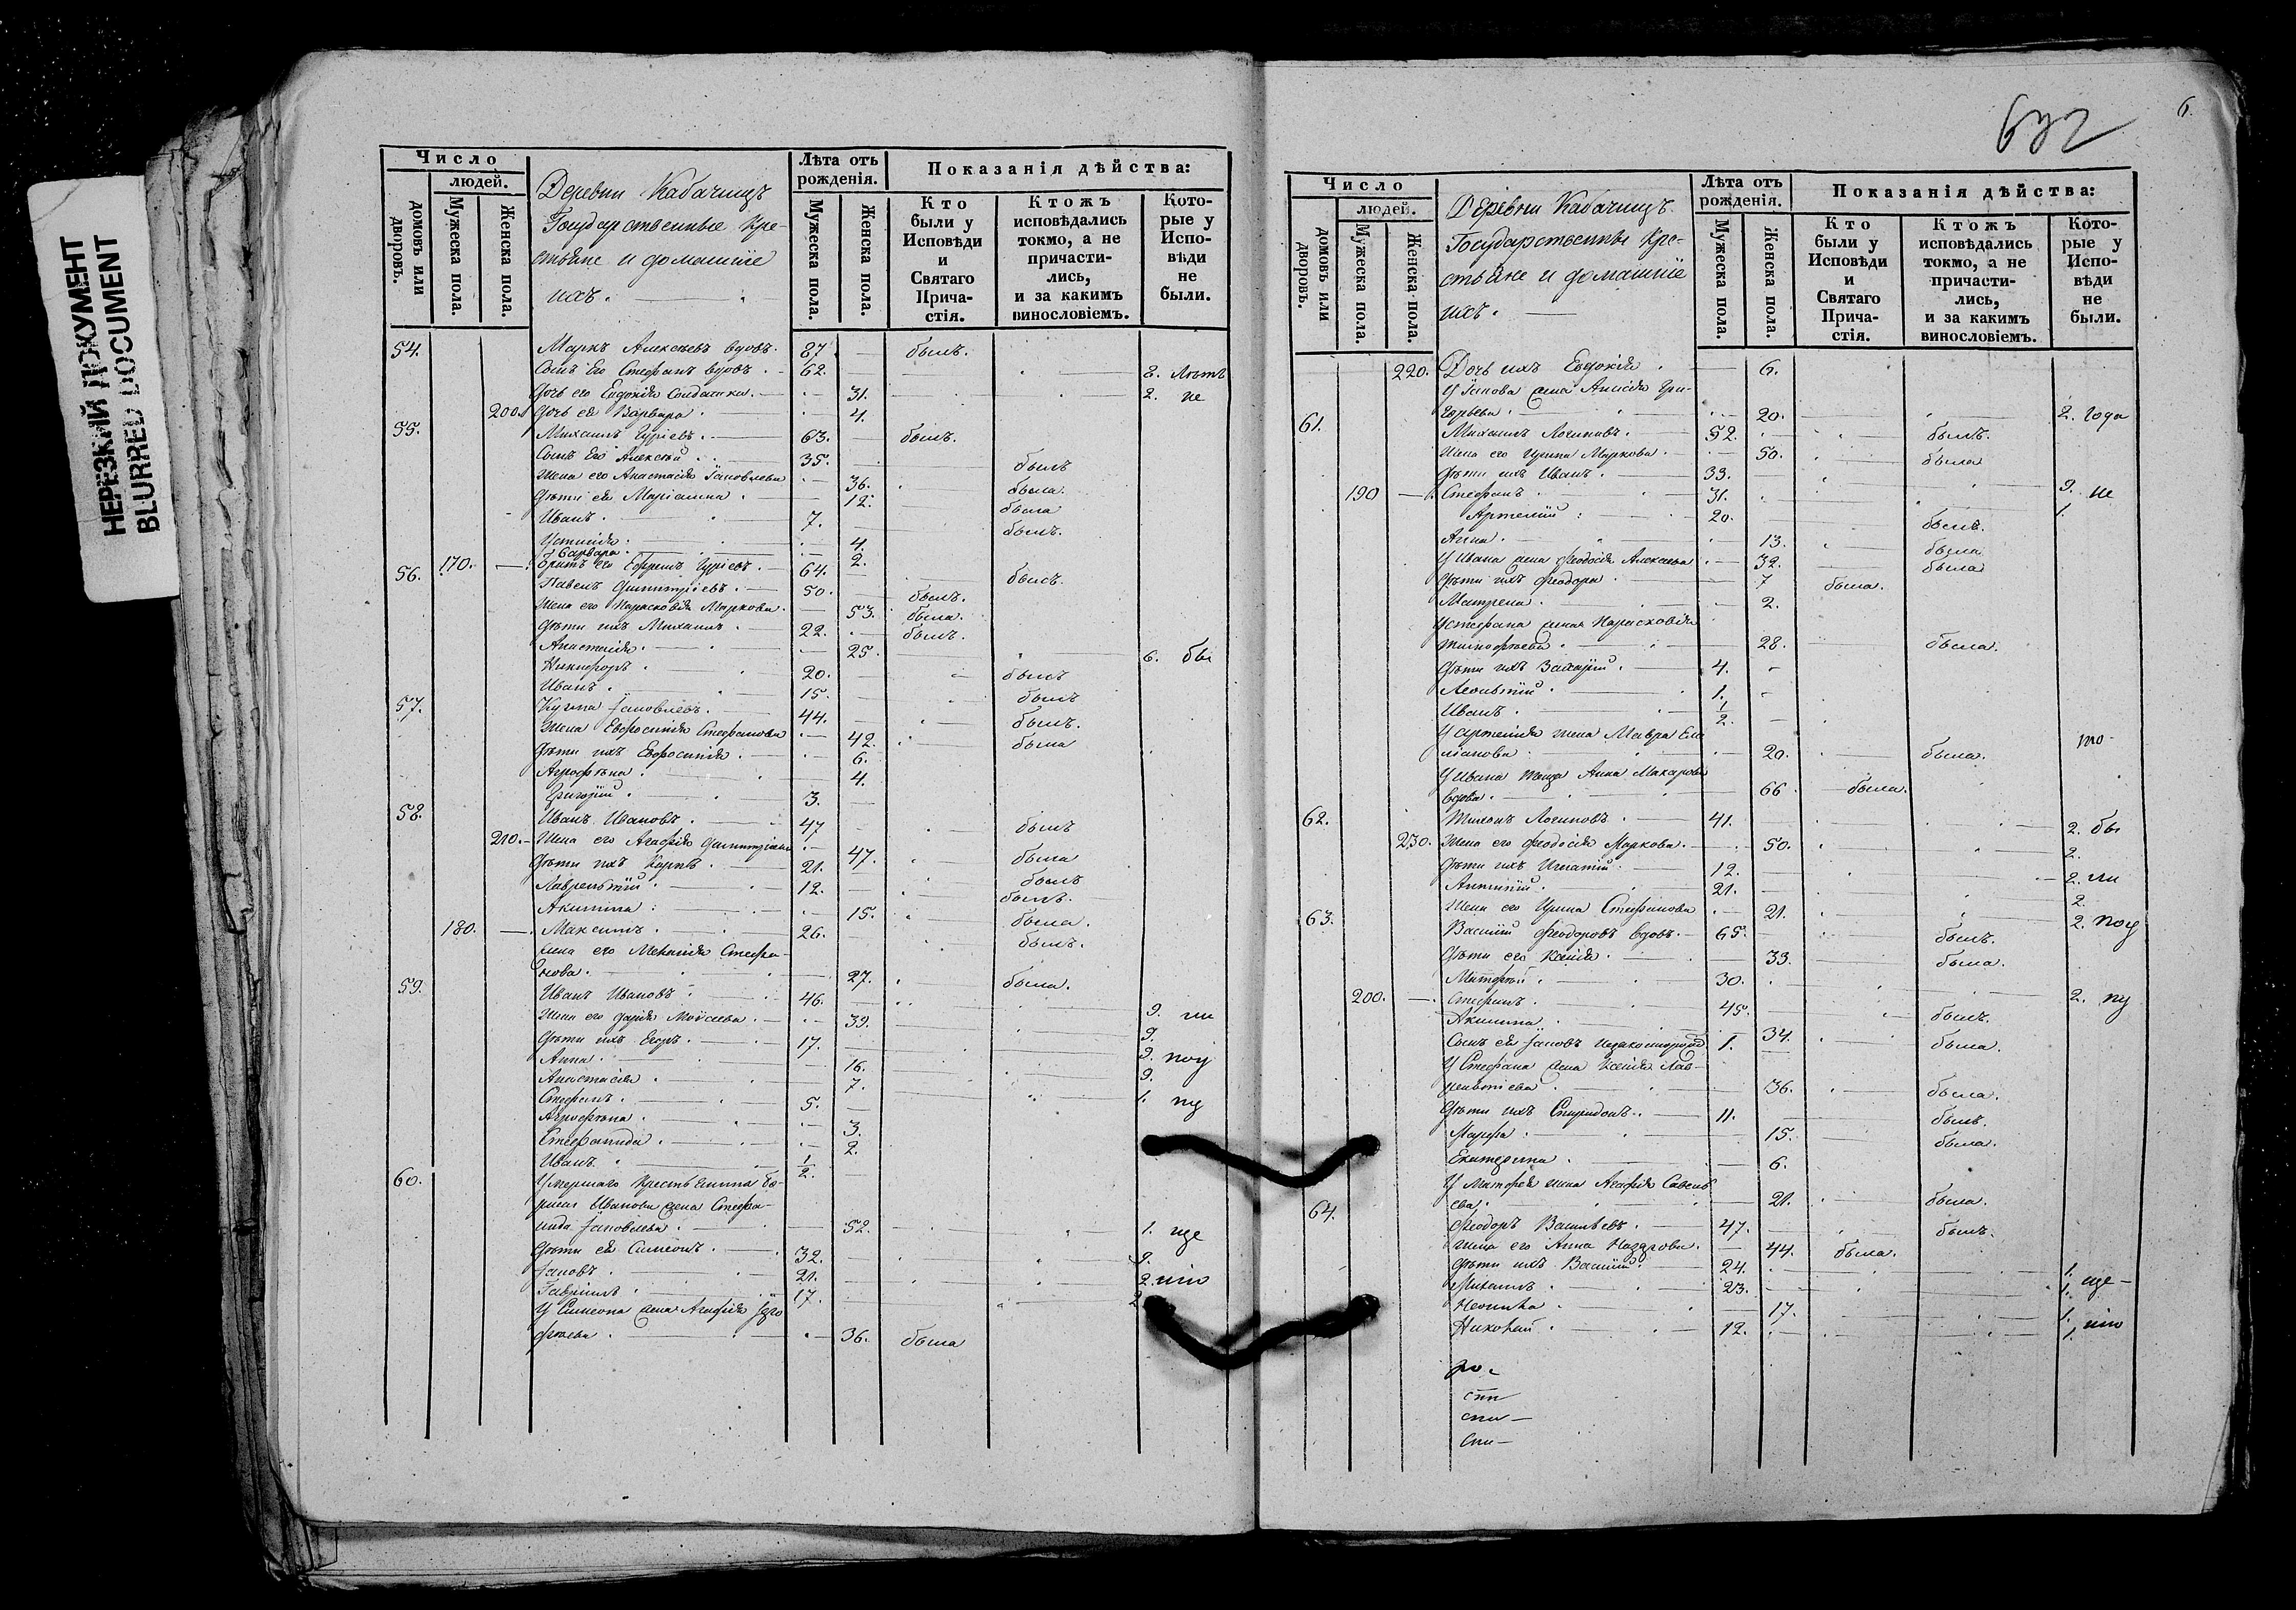 НЕРЕЗКИЙ ДОКУМЕНТ
BLURRED DOCUMENT
Число
людей.
домовъ или дворовъ.
Мужеска пола.
Женска пола.
Деревни Кабачищъ
Государственные Кре-
стьяне и домашніе
ихъ.
Лѣта отъ рожденія.
Мужеска пола.
Женска пола.
Показанія дѣйства:
Кто были у Исповѣди и Святаго Прича-стія.
Ктожъ исповѣдались токмо, а не причасти-лись, и за какимъ винословіемъ.
Кото-рые у Испо-вѣди не были.
54. Маркъ Алексѣевъ вдовъ. 87 былъ.
Сынъ Его Стефанъ вдовъ. 62. 2. лѣтъ
Дочь его Евдокія Солдатка. 31. 2. не
200. Дочь ея Варвара. 4.
55. Михаилъ Гуріевъ. 63. былъ.
Сынъ Его Алексѣй 35. былъ
Жена его Анастасія Іаковлева 36. была.
Дѣти ея Маріанна. 12. была
Иванъ. 7. былъ.
Устинія. 4.
Варвара. 2.
56. 170. Братъ его Ефремъ Гуріевъ. 64. былъ.
Павелъ Димитріевъ. 50. былъ.
Жена его Парасковія Маркова. 53. была.
Дѣти ихъ Михаилъ. 22. былъ.
Анастасія. 25. 6. бы
Никифоръ. 20. былъ
Иванъ. 15. былъ
57. Кузма Іаковлевъ. 44. былъ.
Жена Евфросинія Стефанова 42. была
Дѣти ихъ Евфросинія. 6.
Агрофѣна. 4.
Григорій. 3.
58. Иванъ Ивановъ. 47 былъ
210. Жена его Агафія Димитріева 47. была
Дѣти ихъ Карпъ. 21. былъ
Лаврентій. 12. былъ.
Акилина. 15. была.
180. Максимъ. 26. былъ.
жена его Меланія Стефа-
нова. 27. была.
59. Иванъ Ивановъ. 46. 9. ли
Жена его Дарія Моѵсеева. 39. 9.
Дѣти ихъ Егоръ. 17. 9. поу
Анна. 16. 9.
Анастасія. 7. 1. пу
Стефанъ. 5.
Агрофѣна. 3.
Стефанида. 2.
Иванъ. 1/2.
60. Умершаго Крестьянина Бо-
риса Иванова жена Стефа-
нида Іаковлева. 52. 1. ще
Дѣти ея Симеонъ. 32. 9.
Іаковъ. 21. 2. нію
Гавріилъ. 17. 2
У Симеона жена Агафія
36. была
6
Число
людей.
домовъ или дворовъ.
Мужеска пола.
Женска пола.
Деревни Кабачищъ.
Государственные Кре-
стьяне и домашніе
ихъ.
Лѣта отъ рожденія.
Мужеска пола.
Женска пола.
Показанія дѣйства:
Кто были у Исповѣди и Святаго Прича-стія.
Ктожъ исповѣдались токмо, а не причасти-лись, и за какимъ винословіемъ.
Кото-рые у Испо-вѣди не были.
220. Дочь ихъ Евдокія 6.
У Іакова жена Анисія Гри-
горьева. 20. 2. года
61. Михаилъ Логиновъ. 52. былъ.
Жена его Ирина Маркова. 50. была
Дѣти ихъ Иванъ. 33. 9. не
190 Стефанъ. 31. 1.
Артемій. 20. былъ.
Анна. 13. была
У Ивана жена Феодосія Алексѣева 32. была
Дѣти ихъ Феодора. 7 была.
Матрена. 2.
У Стефана жена Парасковія
Тимофѣева. 28. была.
Дѣти ихъ Захарій. 4.
Леонтій. 1.
Иванъ. 1/2.
У Артемія жена Мавра Еме-
ліанова. 20. была. то
У Ивана теща Анна Макарова
вдова. 66. была.
62. Тихонъ Логиновъ. 41. 2. бы
230. Жена его Феодосія Маркова. 50. 2.
Дѣти ихъ Игнатій. 12. 2. ли
21. 2.
Жена его Ирина Стефанова 21. 2. поу
63. Василій Феодоровъ вдовъ. 65. былъ.
Дѣти его Ксенія. 33. была.
30. 2. пу
200. Стефанъ. 45. былъ.
Акилина. 34. была.
Сынъ ея Іаковъ 1.
У Стефана жена Ксенія Лав-
рентіева. 36. была.
Дѣти ихъ Спиридонъ. 11. былъ.
Марфа. 15. была.
Екатерина. 6.
У жена Агафія Савель-
ева. 21. была.
64. Феодоръ Васильевъ. 47. былъ.
Жена его Анна Назарова. 44. была.
Дѣти ихъ Василій. 24. 1. ще-
Михаилъ. 23. 1.
17. 1. нію
Николай. 12. 1.